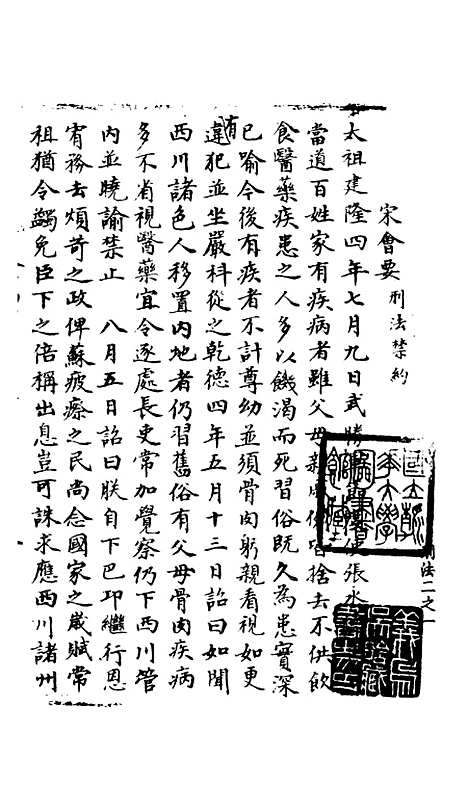 宋會要 刑法禁約
太祖建隆四年七月九日武勝張永
當道百姓家有疾病者雖父母親捨去不供飲
食醫藥疾患之人多以饑渴而死習俗既久為患實深
已喻今後有疾者不計尊幼並須骨肉躬親看視如更
有
違犯並坐嚴科從之乾德四年五月十三日詔曰如聞
西川諸色人移置内地者仍習舊俗有父母骨肉疾病
多不省視醫藥宜令逐處長吏常加覺察仍下西川管
内並曉諭禁止 八月五日詔曰朕自下巴邛繼行恩
宥務去煩苛之政俾蘇疲瘵之民尚念國家之歲賦常
祖猶令蠲免臣下之倍稱出息豈可誅求應西川諸州
法二之一